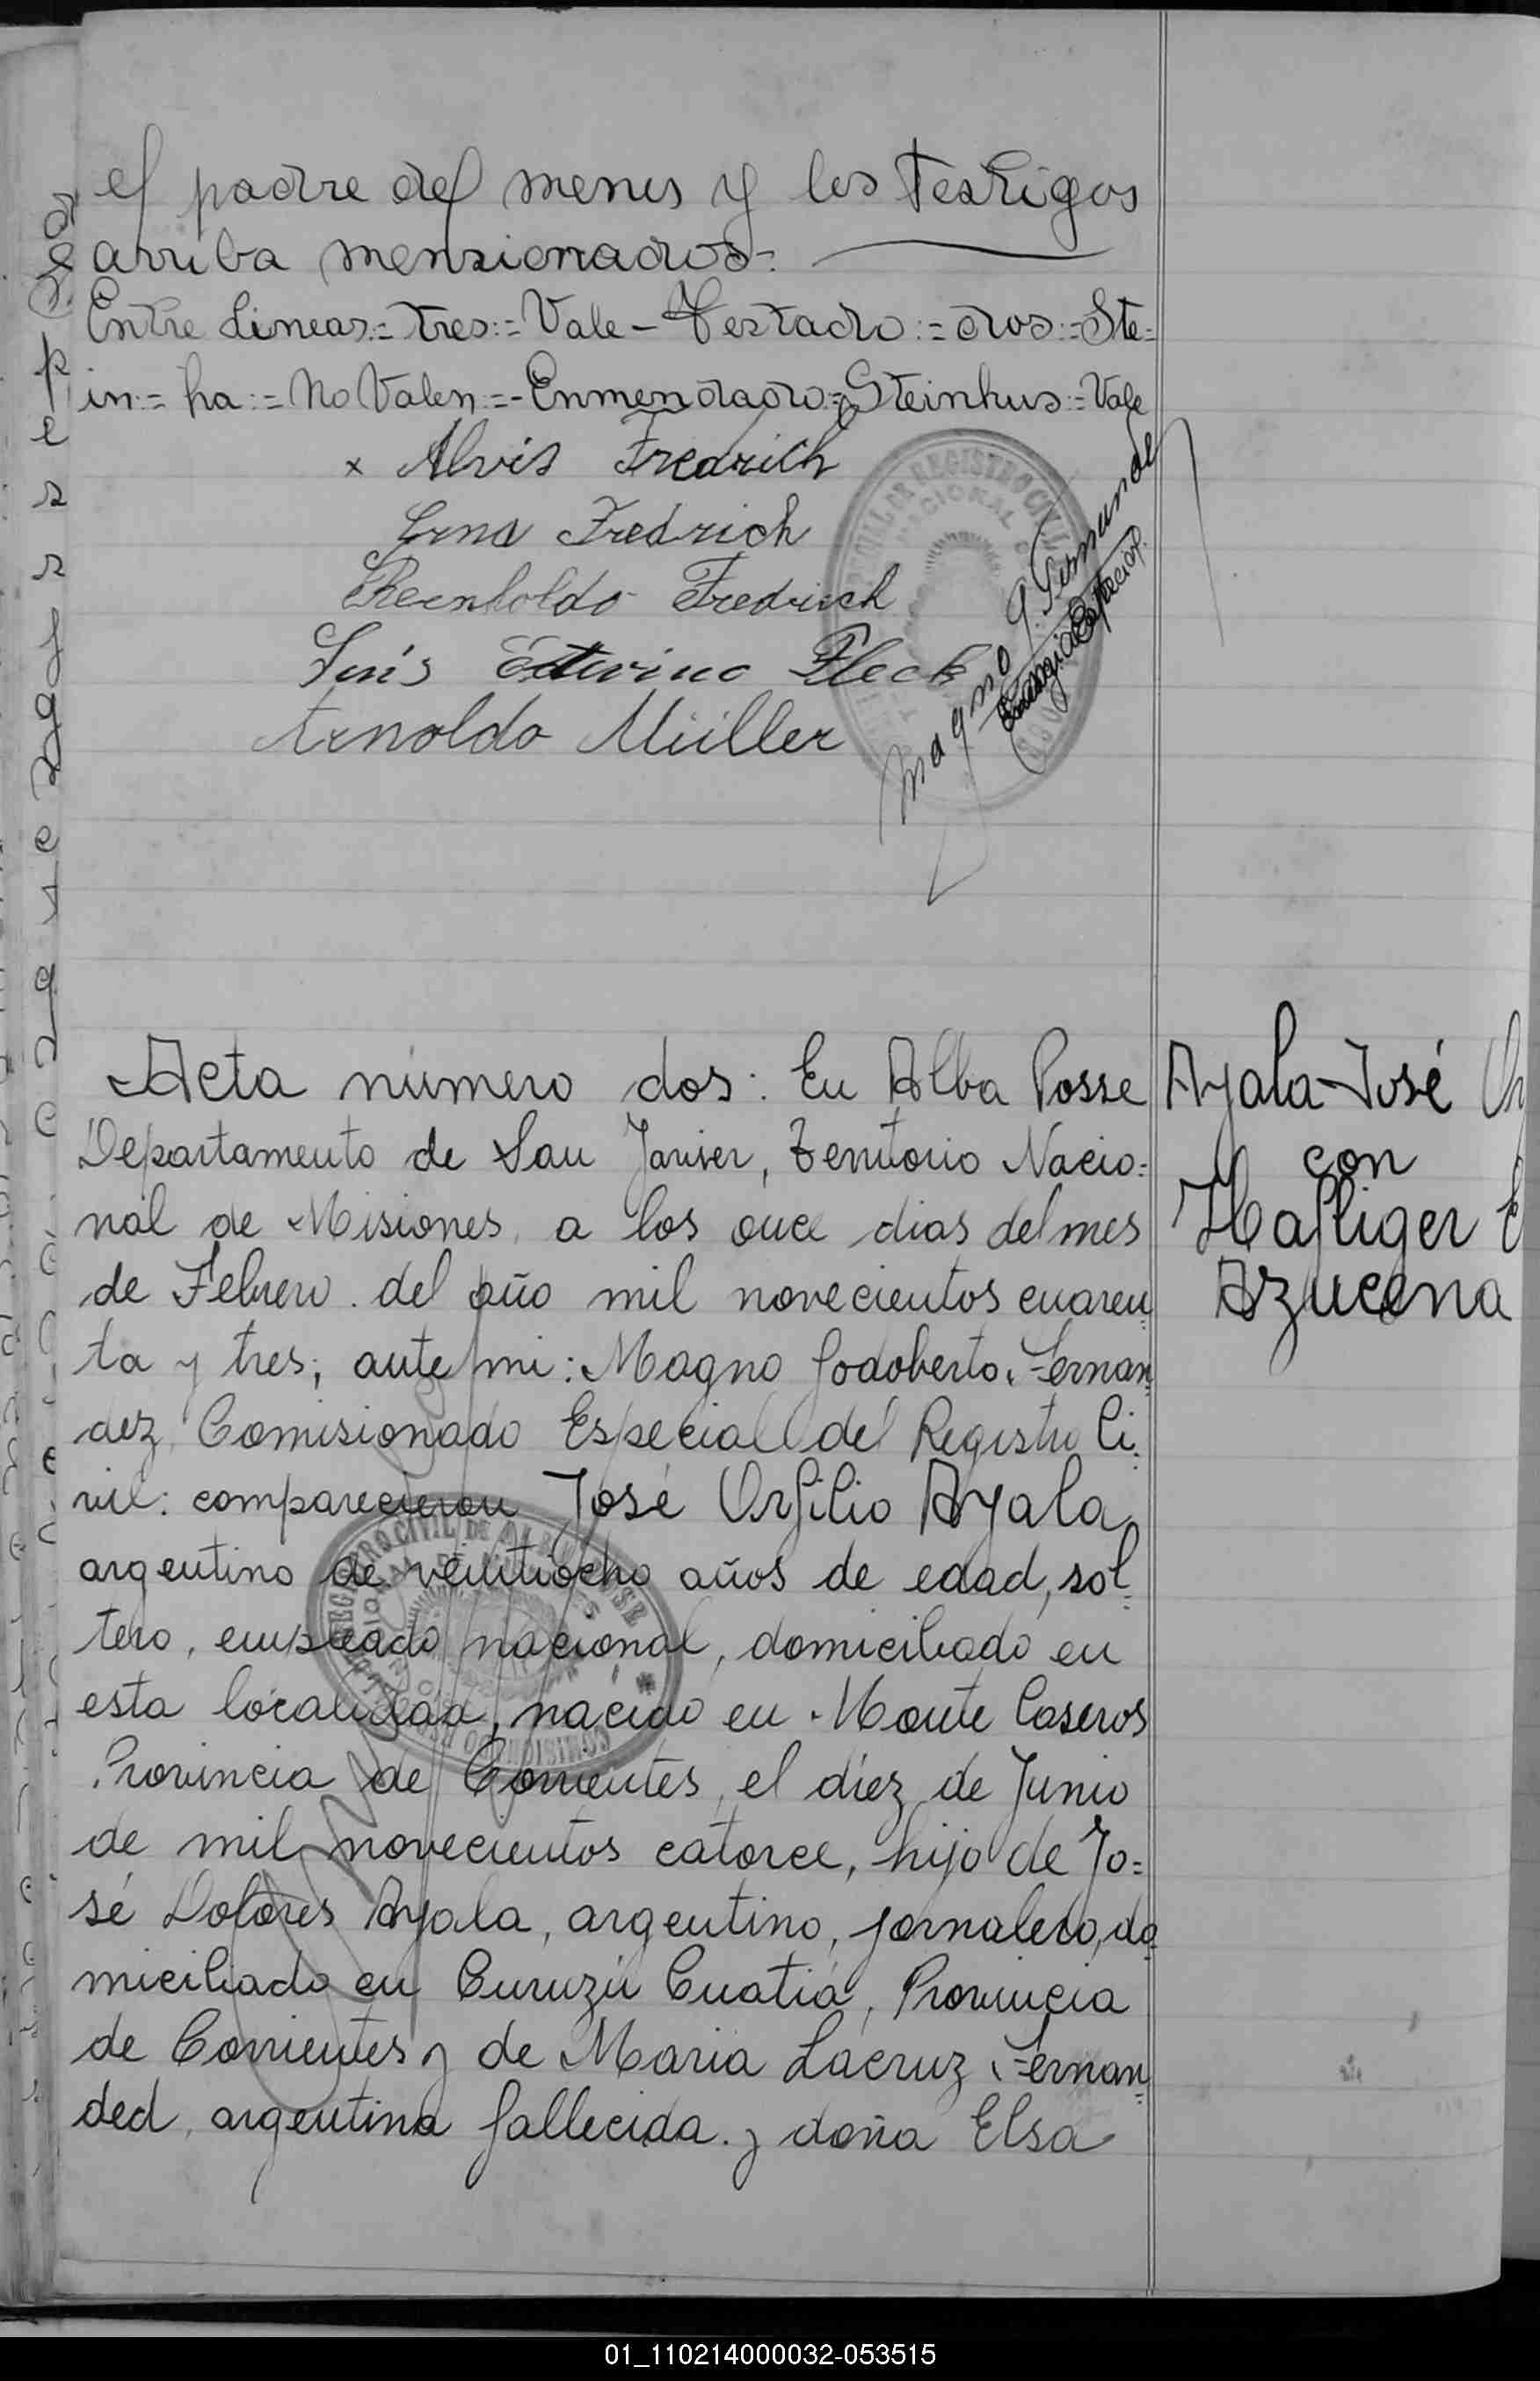 el padre del menor y los testigos
arriba menzionados.-
Entre Lineas:=tres:=Vale-Testado:=dos:=Ste=
in:=ha:=No Valen:=-Enmendado:=Steinhus:=Vale
x Alvis Fredrich
Erna Fredrich
Reenholdo Fredrich
Luis Edwino Fleck
Arnoldo Müller
Magno G. Fernandez
Especial
Acta número dos: En Alba Posse
Departamento de San Javier, Territorio Nacio=
nal de Misiones, a los once dias del mes
de Febrero del año mil novecientos cuaren=
ta y tres; ante mi: Magno Godoberto Fernan=
dez, Comisionado Especial del Registro Ci=
vil: comparecieron José Orfilio Ayala,
argentino de veintiocho años de edad, sol=
tero, empleado nacional, domiciliado en
esta localidad, nacido en Monte Caseros
Provincia de Corrientes, el diez de Junio
de mil novecientos catorce, hijo de Jo=
sé Dolores Ayala, argentino, jornalero, do=
miciliado en Curuzú Cuatiá, Provincia
de Corrientes y de Maria Lacruz Fernan=
ded, argentina fallecida. y doña Elsa
Ayala José
con
Hafliger
Azucena
01_110214000032-053515